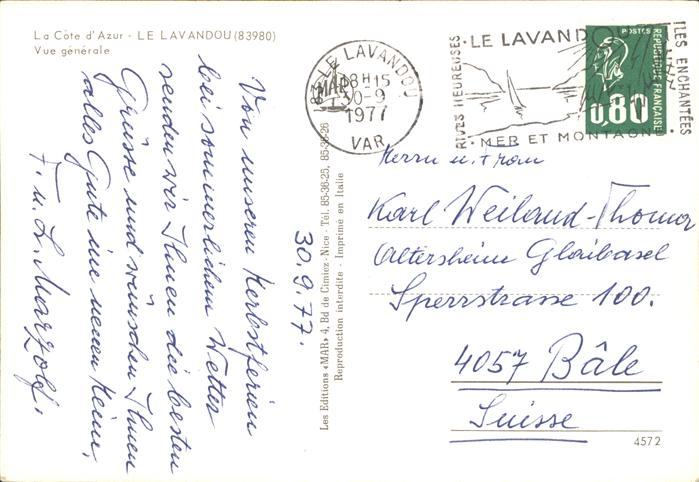 La Côte d'Azur - LE LAVANDOU (83980)
Vue générale
Von unseren Herbstferien
bei sommerlichem Wetter
senden wir Ihnen die besten
Grüsse und wünschen Ihnen
alles Gute im neuen Heim.
F. u. L. Marzolf.
30.9.77.
Les Editions «MAR» 4, Bd de Cimiez - Nice - Tél. 85-36-25, 85-36-26
Reproduction interdite - Imprimé en Italie
LE LAVANDOU
18H15
30-9
1977
VAR
RIVES HEUREUSES
LE LAVAND
ILES ENCHANTÉES
MER ET MONTAGN
POSTES
REPUBLIQUE FRANÇAISE
0,80
Herrn u. Frau
Karl Weiland-Thoma
Altersheim Glaibasel
Sperrstrasse 100.
4057 Bâle
Suisse
4572